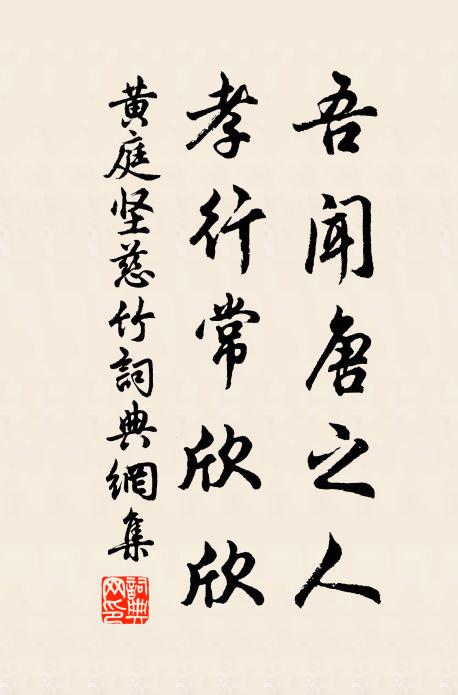 吾闻唐之人
孝行常欣欣
黄庭坚慈竹詞典網集
詞典網印